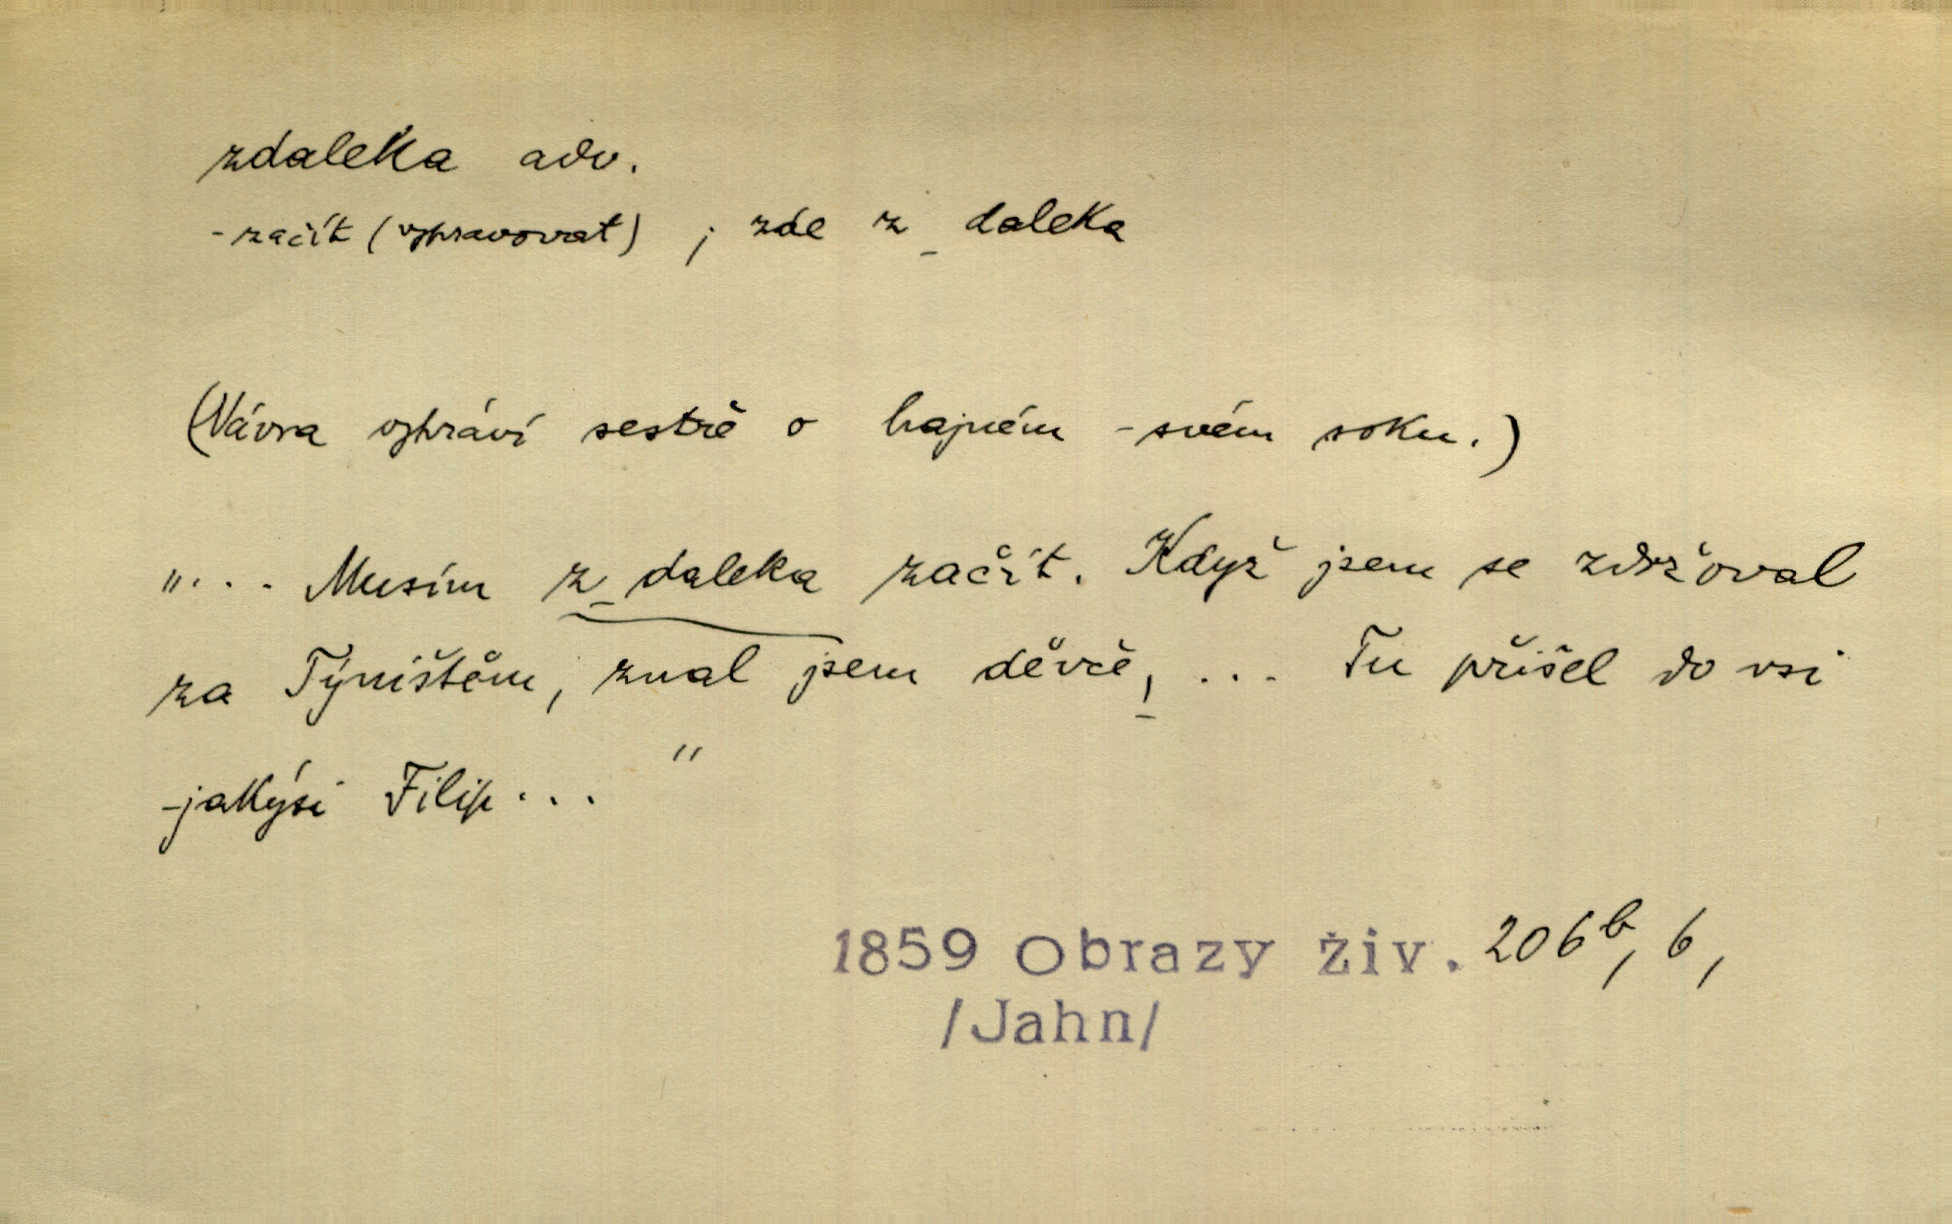 zdaleka adv.
-začít (vypravovat) ; zde z_daleka
(Vávra vypráví sestře o hajném - svém soku.)
"... Musím z_daleka začít. Když jsem se zdržoval
za Týništěm, znal jsem děvče, ... Tu přišel do vsi
jakýsi Filip ... "
1859 Obrazy živ. 206b, 6,
/Jahn/